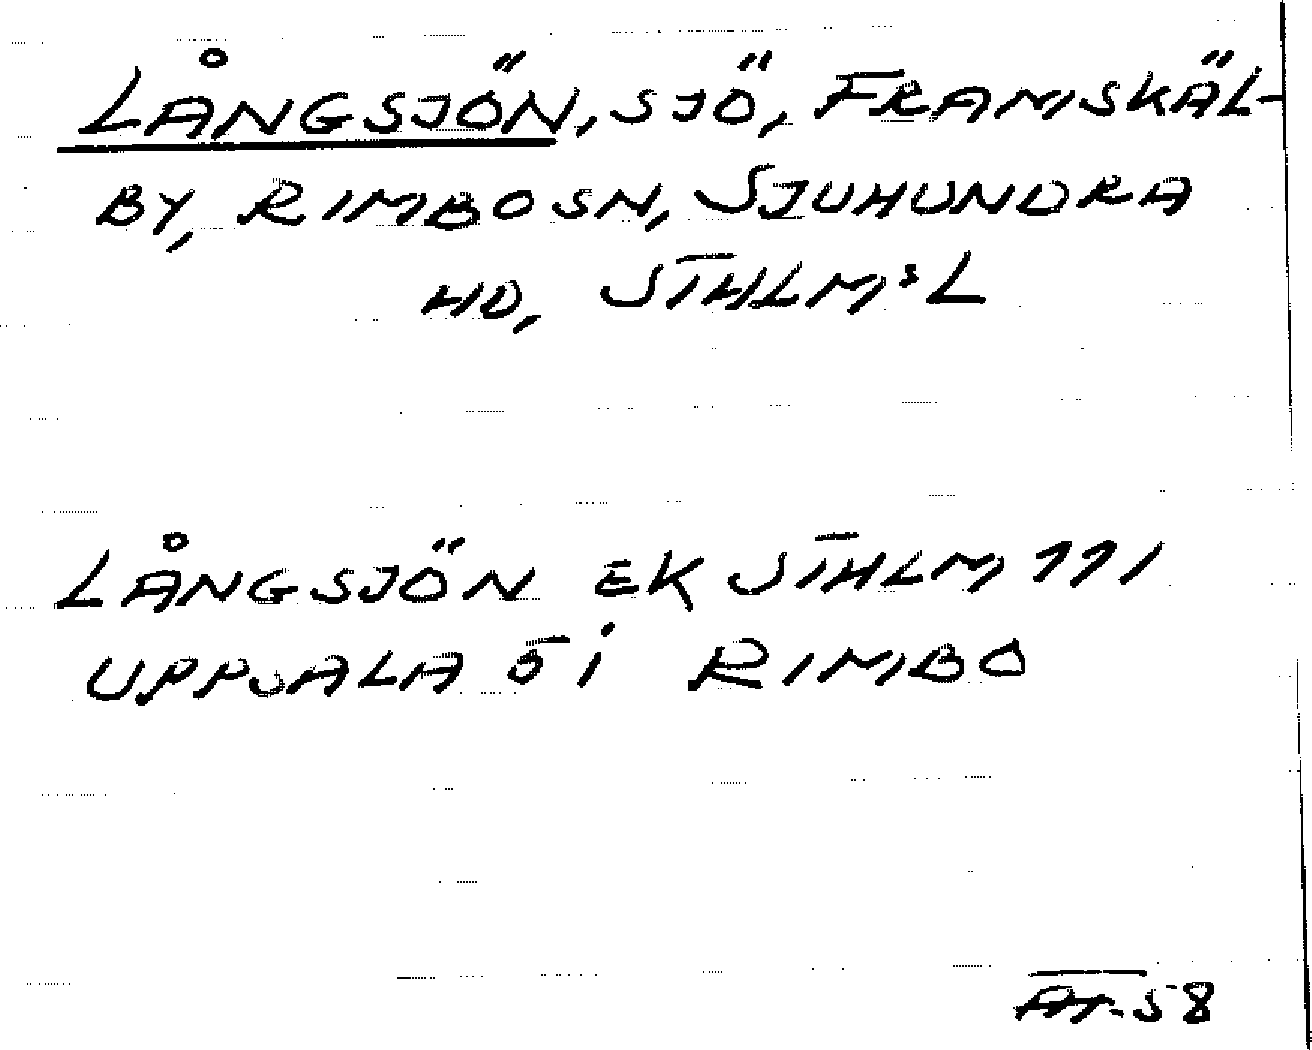 LÅNGSJÖN, SJÖ, FRAMSKÄL-
BY, RIMBO SN, SJUHUNDRA
HD, STHLM:S L
LÅNGSJÖN EK STHLM 111
UPPSALA 5 I RIMBO
58